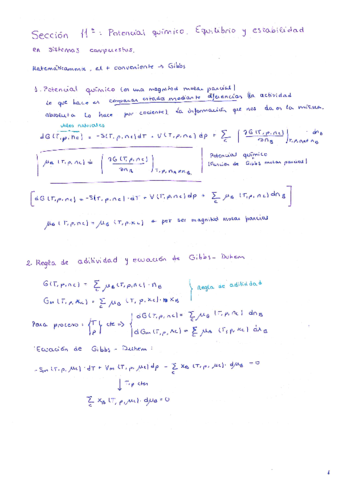 Sección 11ª: Potencial químico. Equilibrio y estabilidad
en sistemas compuestos.
Matemáticamente, el + conveniente → Gibbs
1. Potencial químico (es una magnitud molar parcial)
lo que hace es comparar estados mediante diferencias (la actividad
absoluta lo hace por cociente) la información que nos da es la misma.
dG(T,p,nc) = -S(T,p,nc)dT + V(T,p,nc)dp + Σc (∂G(T,p,nc)/∂nB)T,p,nA≠nB dnB
μB(T,p,nc) = (∂G(T,p,nc)/∂nB)T,p,nA≠nB
Potencial químico
(función de Gibbs molar parcial)
[dG(T,p,nc) = -S(T,p,nc)·dT + V(T,p,nc)dp + Σc μB(T,p,nc)dnB]
μB(T,p,nc) = μB(T,p,xc) ← por ser magnitud molar parcial
2. Regla de aditividad y ecuación de Gibbs-Duhem
G(T,p,nc) = Σc μB(T,p,nc)·nB
Gm(T,p,xc) = Σc μB(T,p,xc)·xB
Regla de aditividad
Para proceso: {T p} cte ⇒ {dG(T,p,nc) = Σc μB(T,p,nc) dnB
dGm(T,p,xc) = Σc μB(T,p,xc) dxB
Ecuación de Gibbs-Duhem:
-Sm(T,p,xc)·dT + Vm(T,p,xc)dp - Σc xB(T,p,xc)·dμB = 0
↓ T,p ctes
Σc xB(T,p,xc)·dμB = 0